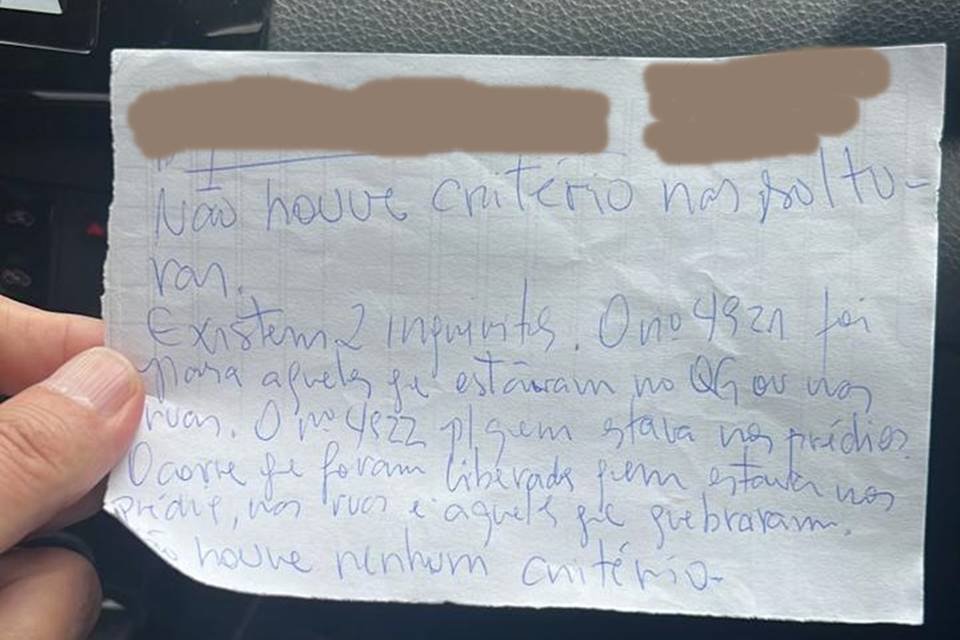 Não houve critério nas soltu-
ras.
Existem 2 inquéritos. O nº 4921 foi
para aqueles que estavam no QG ou nas
ruas. O nº 4922 p/ quem estava nos prédios.
Ocorre que foram liberadas quem estava nos
prédios, nas ruas e aqueles que quebraram.
houve nenhum critério.